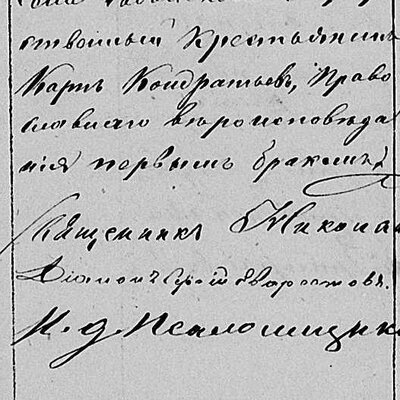 ственный Крестьянинъ
Карпъ Кондратьевъ, Право
славнаго вѣроисповѣда
нія первымъ бракомъ
Священникъ Никола
Діаконъ
И. д. Псаломщика